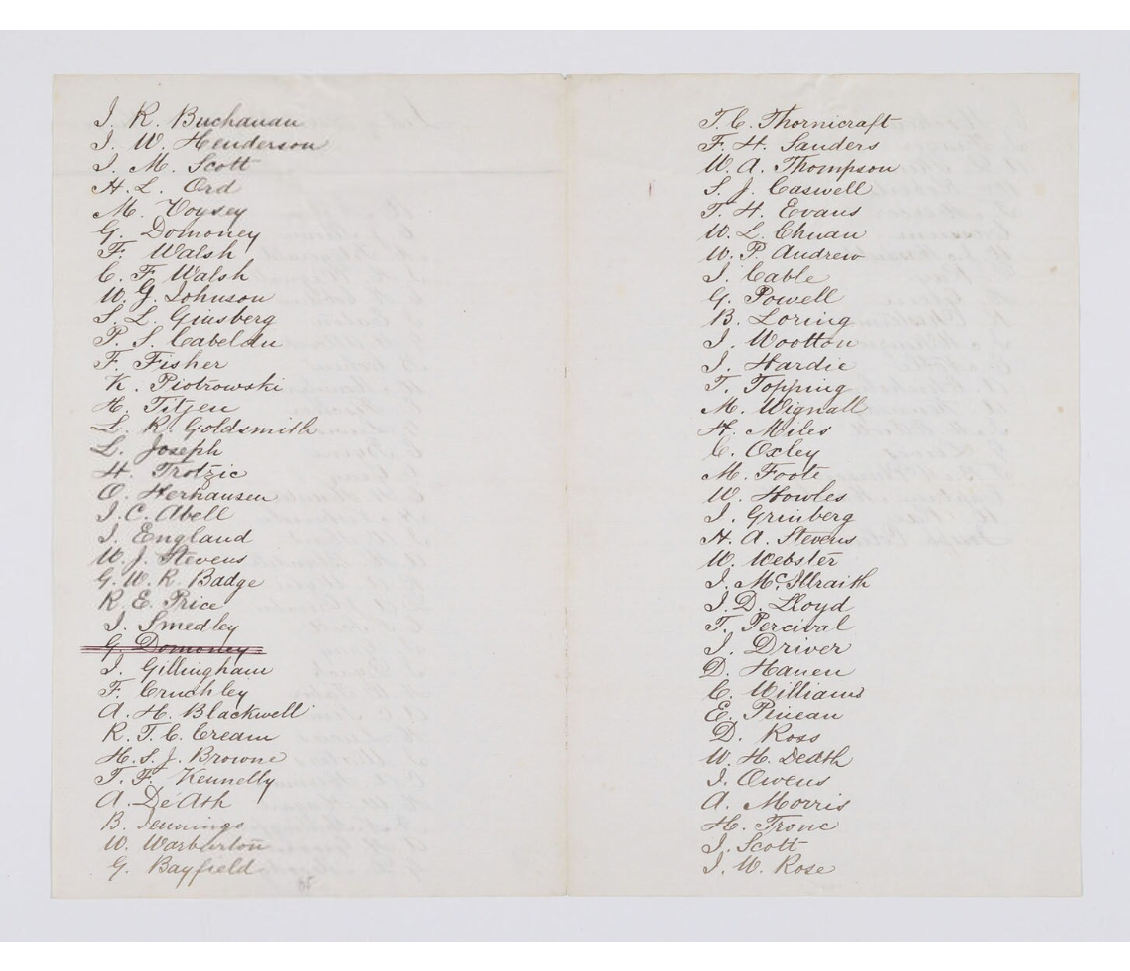 J. R. Buchanan
J. W. Henderson
J. M. Scott
H. L. Ord
M. Voysey
G. Domoney
F. Walsh
C. F. Walsh
W. G. Johnson
S. L. Ginsberg
P. S. Cabeldu
F. Fisher
K. Piotrowski
H. Titjen
L. R. Goldsmith
L. Joseph
H. Trotzic
O. Herhausen
J. C. Abell
J. England
W. J. Stevens
G. W. R. Badge
R. E. Price
J. Smedley
G. Domoney
J. Gillingham
F. Cruchley
A. H. Blackwell
R. T. C. Cream
H. S. J. Browne
T. F. Kennelly
A. De'Ath
B. Jennings
W. Warburton
G. Bayfield
T. C. Thornicraft
F. H. Sanders
W. A. Thompson
S. J. Caswell
T. H. Evans
W. L. Chuan
W. P. Andrew
J. Cable
G. Powell
B. Loring
J. Wootton
J. Hardie
T. Topping
M. Wignall
H. Miles
C. Oxley
M. Foote
W. Howles
J. Grinberg
H. A. Stevens
W. Webster
J. McIlraith
J. D. Lloyd
T. Percival
J. Driver
D. Hanen
C. Williams
E. Pineau
D. Ross
W. H. Death
J. Owens
A. Morris
H. Tronc
J. Scott
J. W. Rose